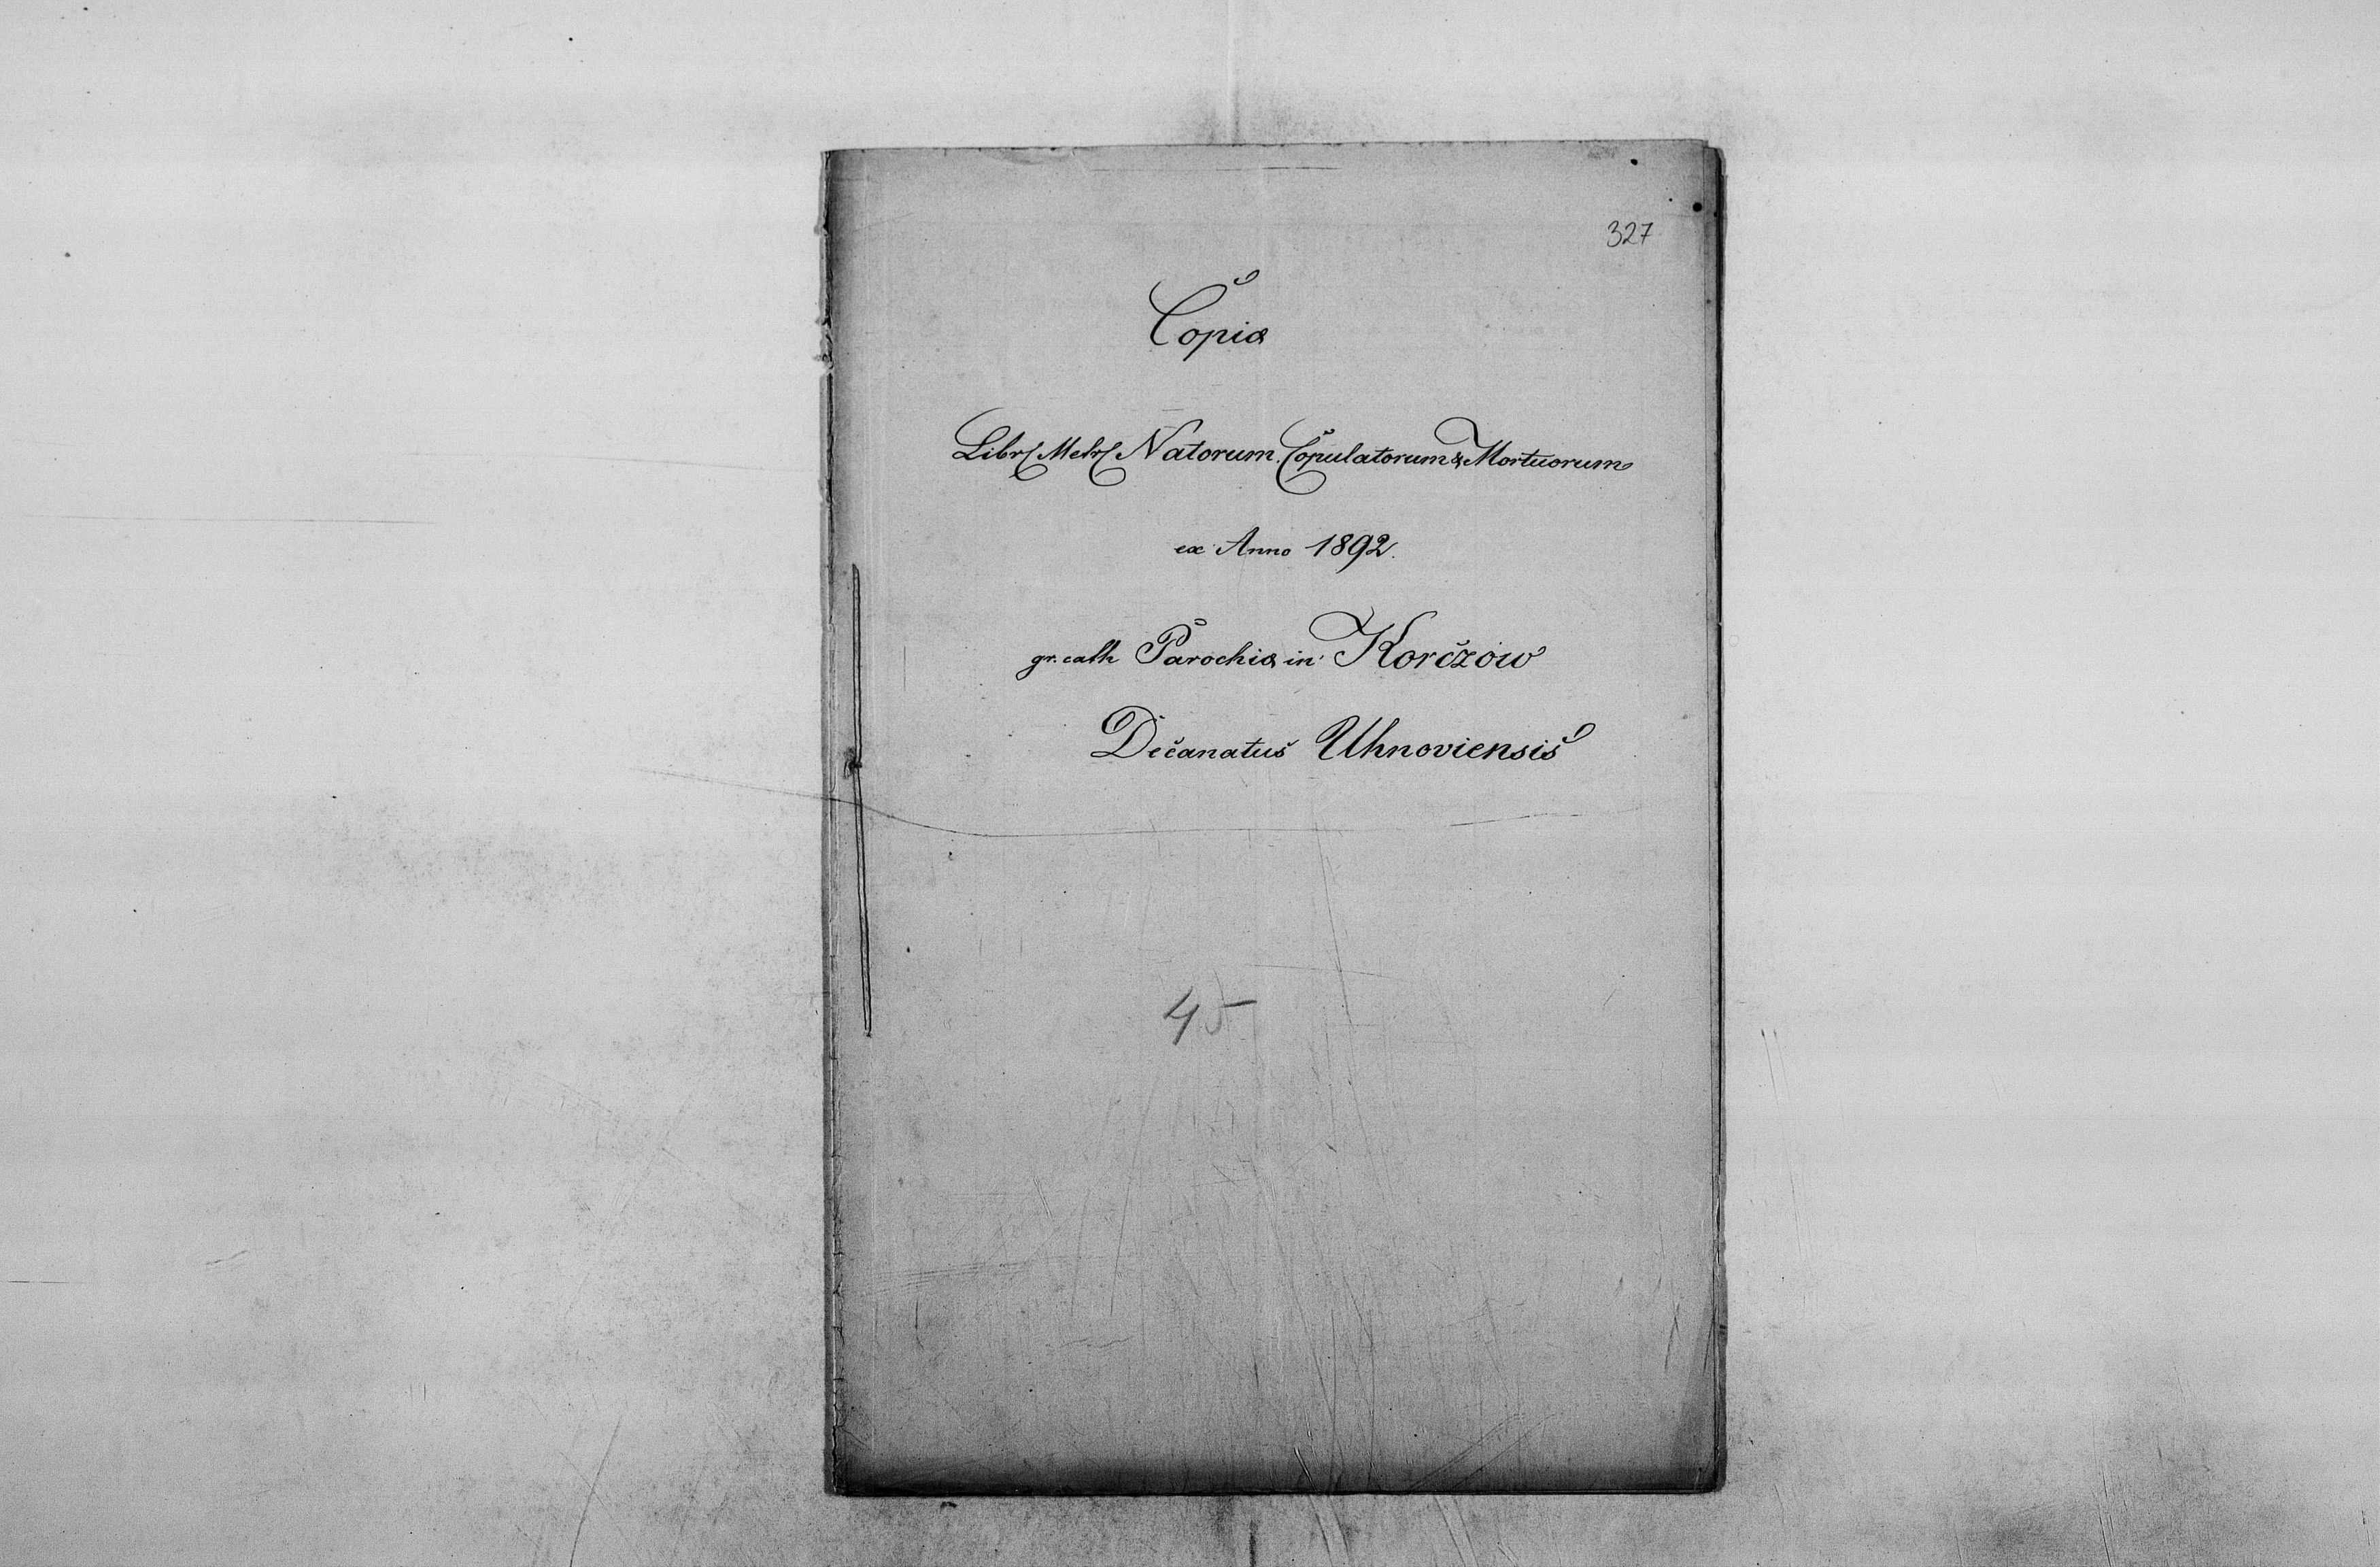 327
Copia
Libr. Metr. Natorum. Copulatorum & Mortuorum
ex Anno 1892.
gr. cath Parochia in Korczow
Decanatus Uhnoviensis
45